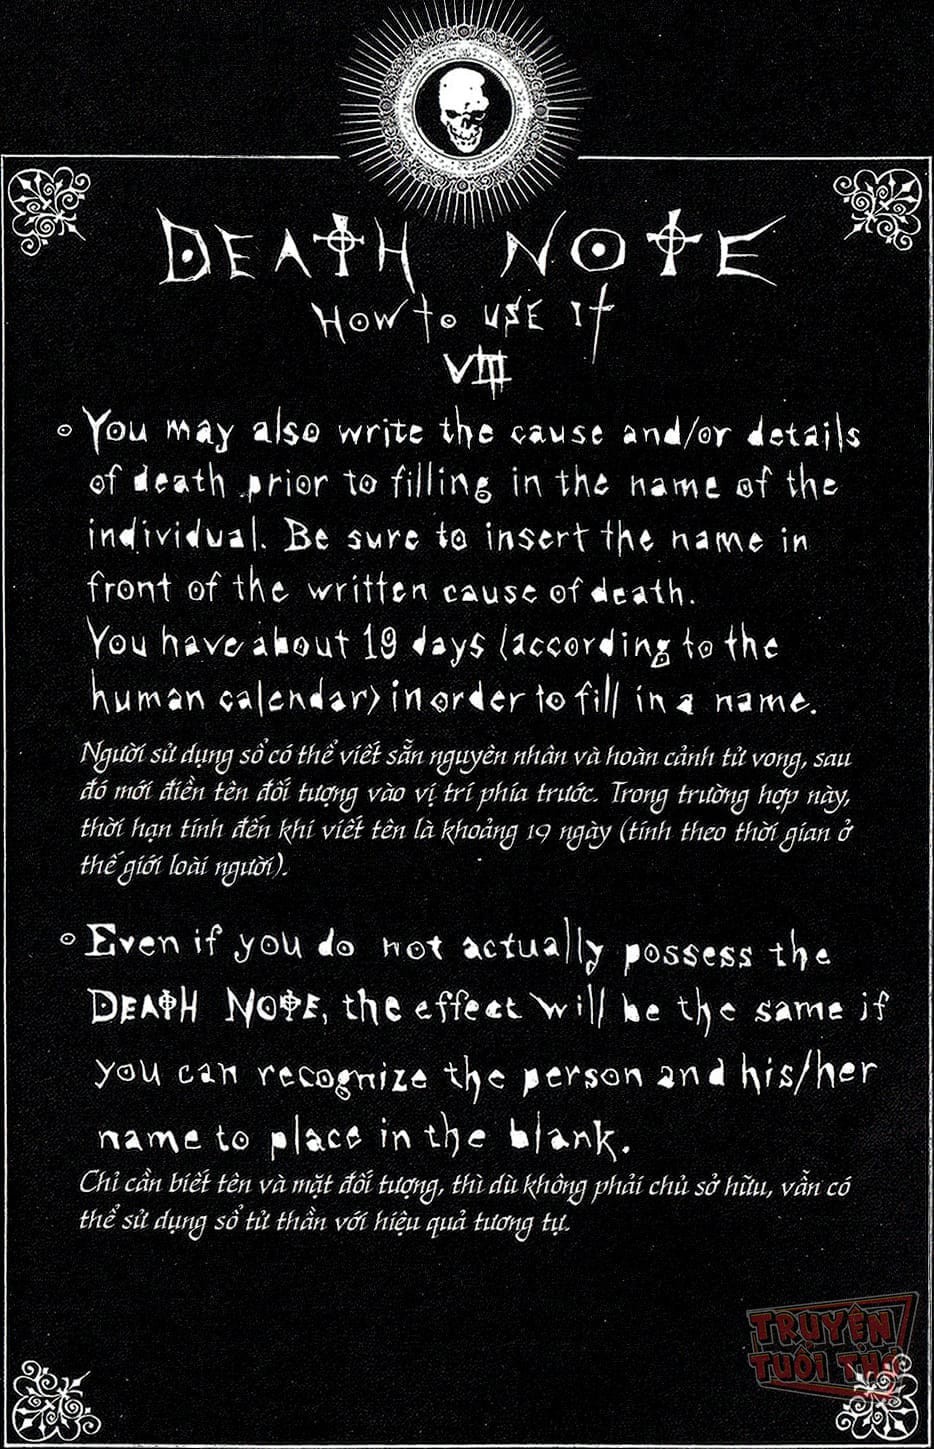 DEATH NOTE
HOW TO USE IT
VIII
You may also write the cause and/or details
of death prior to filling in the name of the
individual. Be sure to insert the name in
front of the written cause of death.
You have about 19 days (according to the
human calendar) in order to fill in a name.
Người sử dụng sổ có thể viết sẵn nguyên nhân và hoàn cảnh tử vong, sau
đó mới điền tên đối tượng vào vị trí phía trước. Trong trường hợp này,
thời hạn tính đến khi viết tên là khoảng 19 ngày (tính theo thời gian ở
thế giới loài người).
Even if you do not actually possess the
DEATH NOTE, the effect will be the same if
you can recognize the person and his/her
name to place in the blank.
Chỉ cần biết tên và mặt đối tượng, thì dù không phải chủ sở hữu, vẫn có
thể sử dụng sổ tử thần với hiệu quả tương tự.
TRUYỆN
TUỔI THƠ